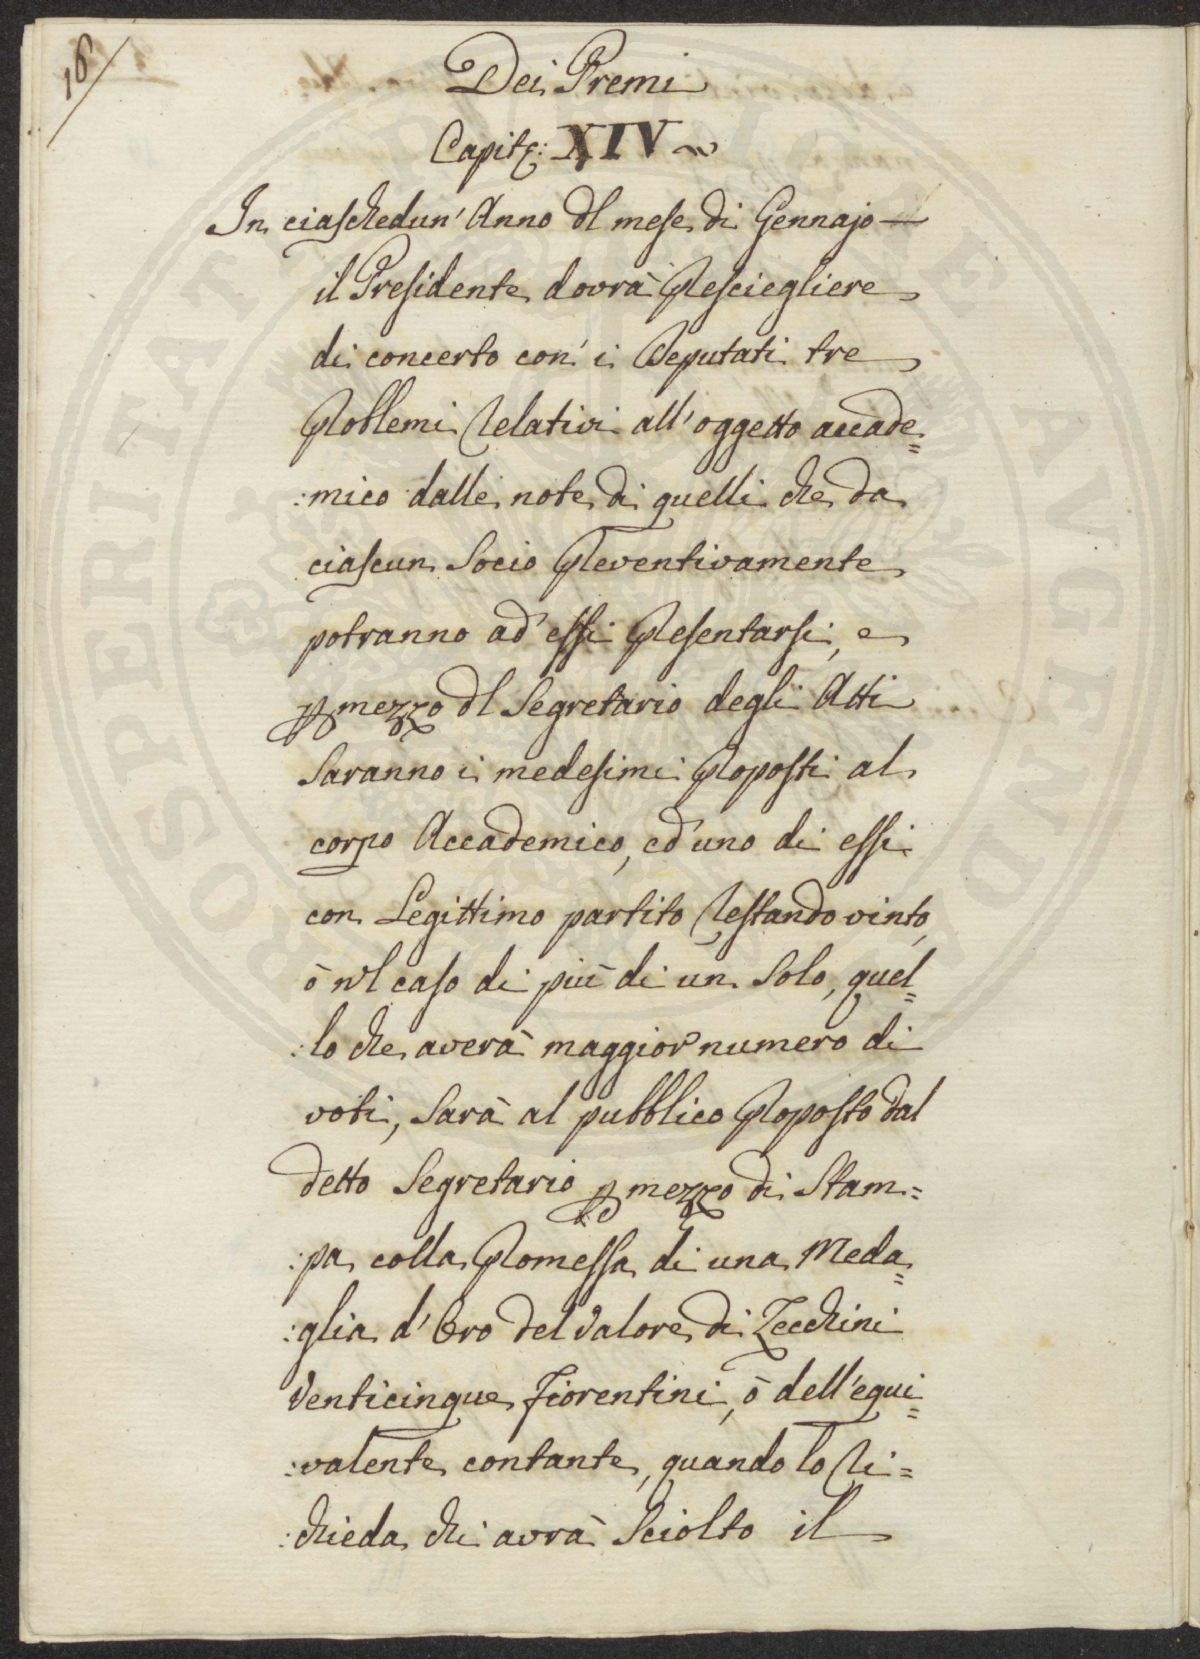 16
Dei Premi
Capito: XIV
In ciaschedun' Anno del mese di Gennajo
il Presidente dovrà Presciegliere
di concerto con' i Deputati tre
Problemi Relativi all'oggetto accade=
:mico dalle note di quelli che da
ciascun Socio Preventivamente
potranno ad' essi Presentarsi, e
p mezzo dl Segretario degli Atti
Saranno i medesimi Proposti al
corpo Accademico, ed' uno di essi
con Legittimo partito Restando vinto,
ò nel caso di più di un Solo, quel=
:lo che averà maggior numero di
voti, Sarà al pubblico Proposto dal
detto Segretario p mezzo di Stam=
:pa colla Promessa di una Meda=
:glia d' Oro del Valore di Zecchini
Venticinque Fiorentini, ò dell'equi=
:valente contante, quando lo Ri=
:chieda chi avrà Sciolto il
PROSPERITATE PUBLICAE AUGENDAE